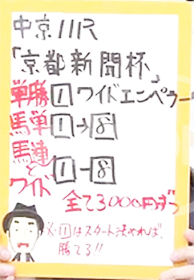 中京11R
「京都新聞杯」
単勝 1 ワイドエンペラー
馬単 1→8
馬連とワイド 1-8
全て3000円ずつ
※1はスタート決めれば
勝てる!!